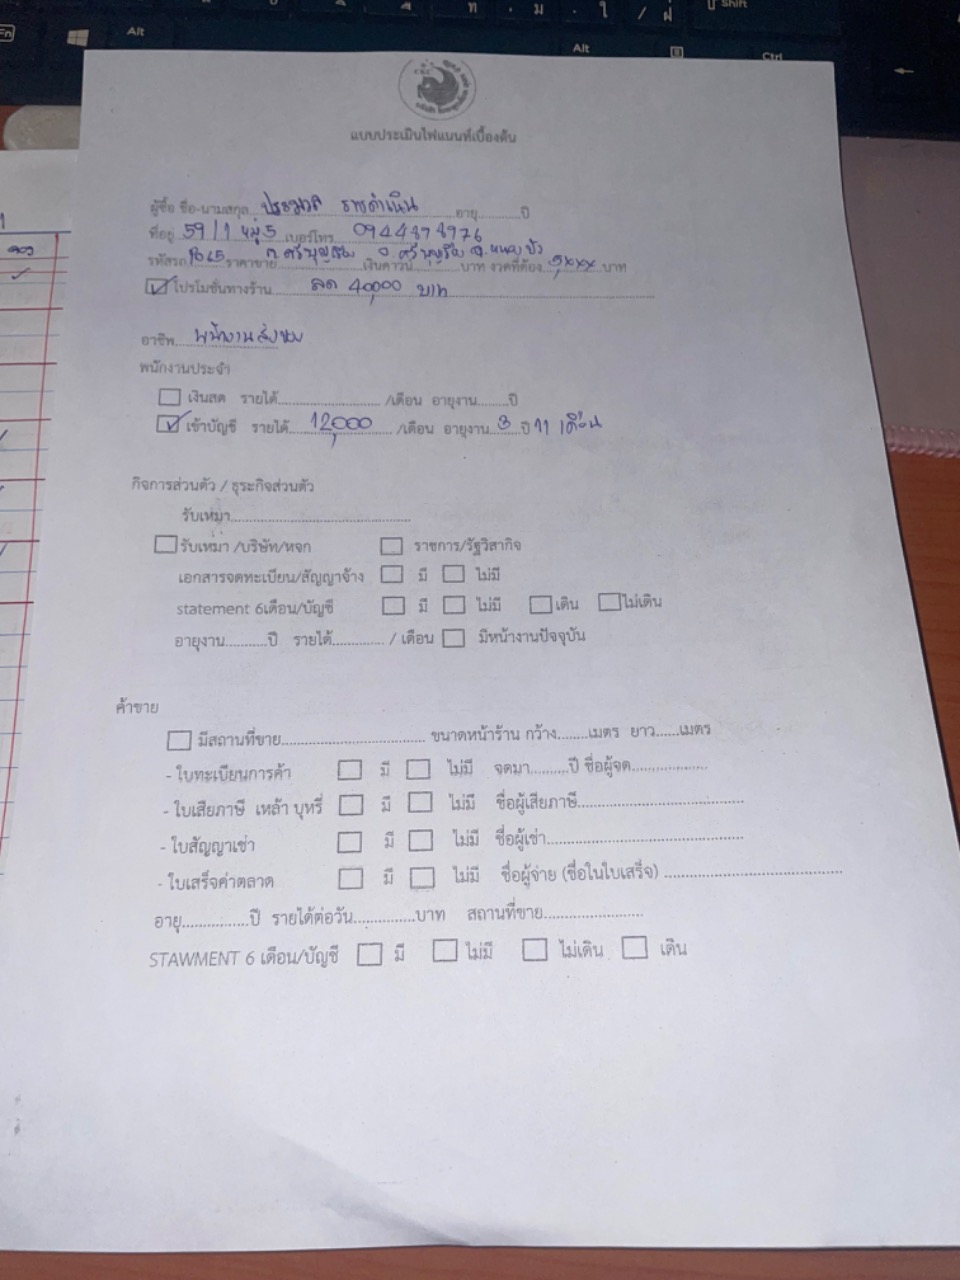 Fn
Alt
Shift
Alt
Ctrl
แบบประเมินไฟแนนท์เบื้องต้น
ผู้ซื้อ ชื่อ-นามสกุล ประมวล ราชดำเนิน อายุ..........ปี
ที่อยู่ 59/1 หมู่ 5 เบอร์โทร
ต. ศรีบุญเรือง อ. ศรีบุญเรือง จ. หนองบัว
รหัสรถ ราคาขาย เงินดาวน์ บาท งวดที่ต้อง 5xxx บาท
โปรโมชั่นทางร้าน ลด 40,000 บาท
อาชีพ พนักงานส่งของ
พนักงานประจำ
เงินสด รายได้............................ /เดือน อายุงาน.........ปี
เข้าบัญชี รายได้ 12,000 /เดือน อายุงาน 3 ปี 11 เดือน
กิจการส่วนตัว / ธุระกิจส่วนตัว
รับเหมา................................................
รับเหมา /บริษัท/หจก ราชการ/รัฐวิสากิจ
เอกสารจดทะเบียน/สัญญาจ้าง มี ไม่มี
statement 6เดือน/บัญชี มี ไม่มี เดิน ไม่เดิน
อายุงาน...........ปี รายได้.............. / เดือน มีหน้างานปัจจุบัน
ค้าขาย
มีสถานที่ขาย.................................... ขนาดหน้าร้าน กว้าง........เมตร ยาว......เมตร
- ใบทะเบียนการค้า มี ไม่มี จดมา..........ปี ชื่อผู้จด....................
- ใบเสียภาษี เหล้า บุหรี่ มี ไม่มี ชื่อผู้เสียภาษี............................................
- ใบสัญญาเช่า มี ไม่มี ชื่อผู้เช่า....................................................
- ใบเสร็จค่าตลาด มี ไม่มี ชื่อผู้จ่าย (ชื่อในใบเสร็จ) ...............................................
อายุ................ปี รายได้ต่อวัน...............บาท สถานที่ขาย.........................
STAWMENT 6 เดือน/บัญชี มี ไม่มี ไม่เดิน เดิน